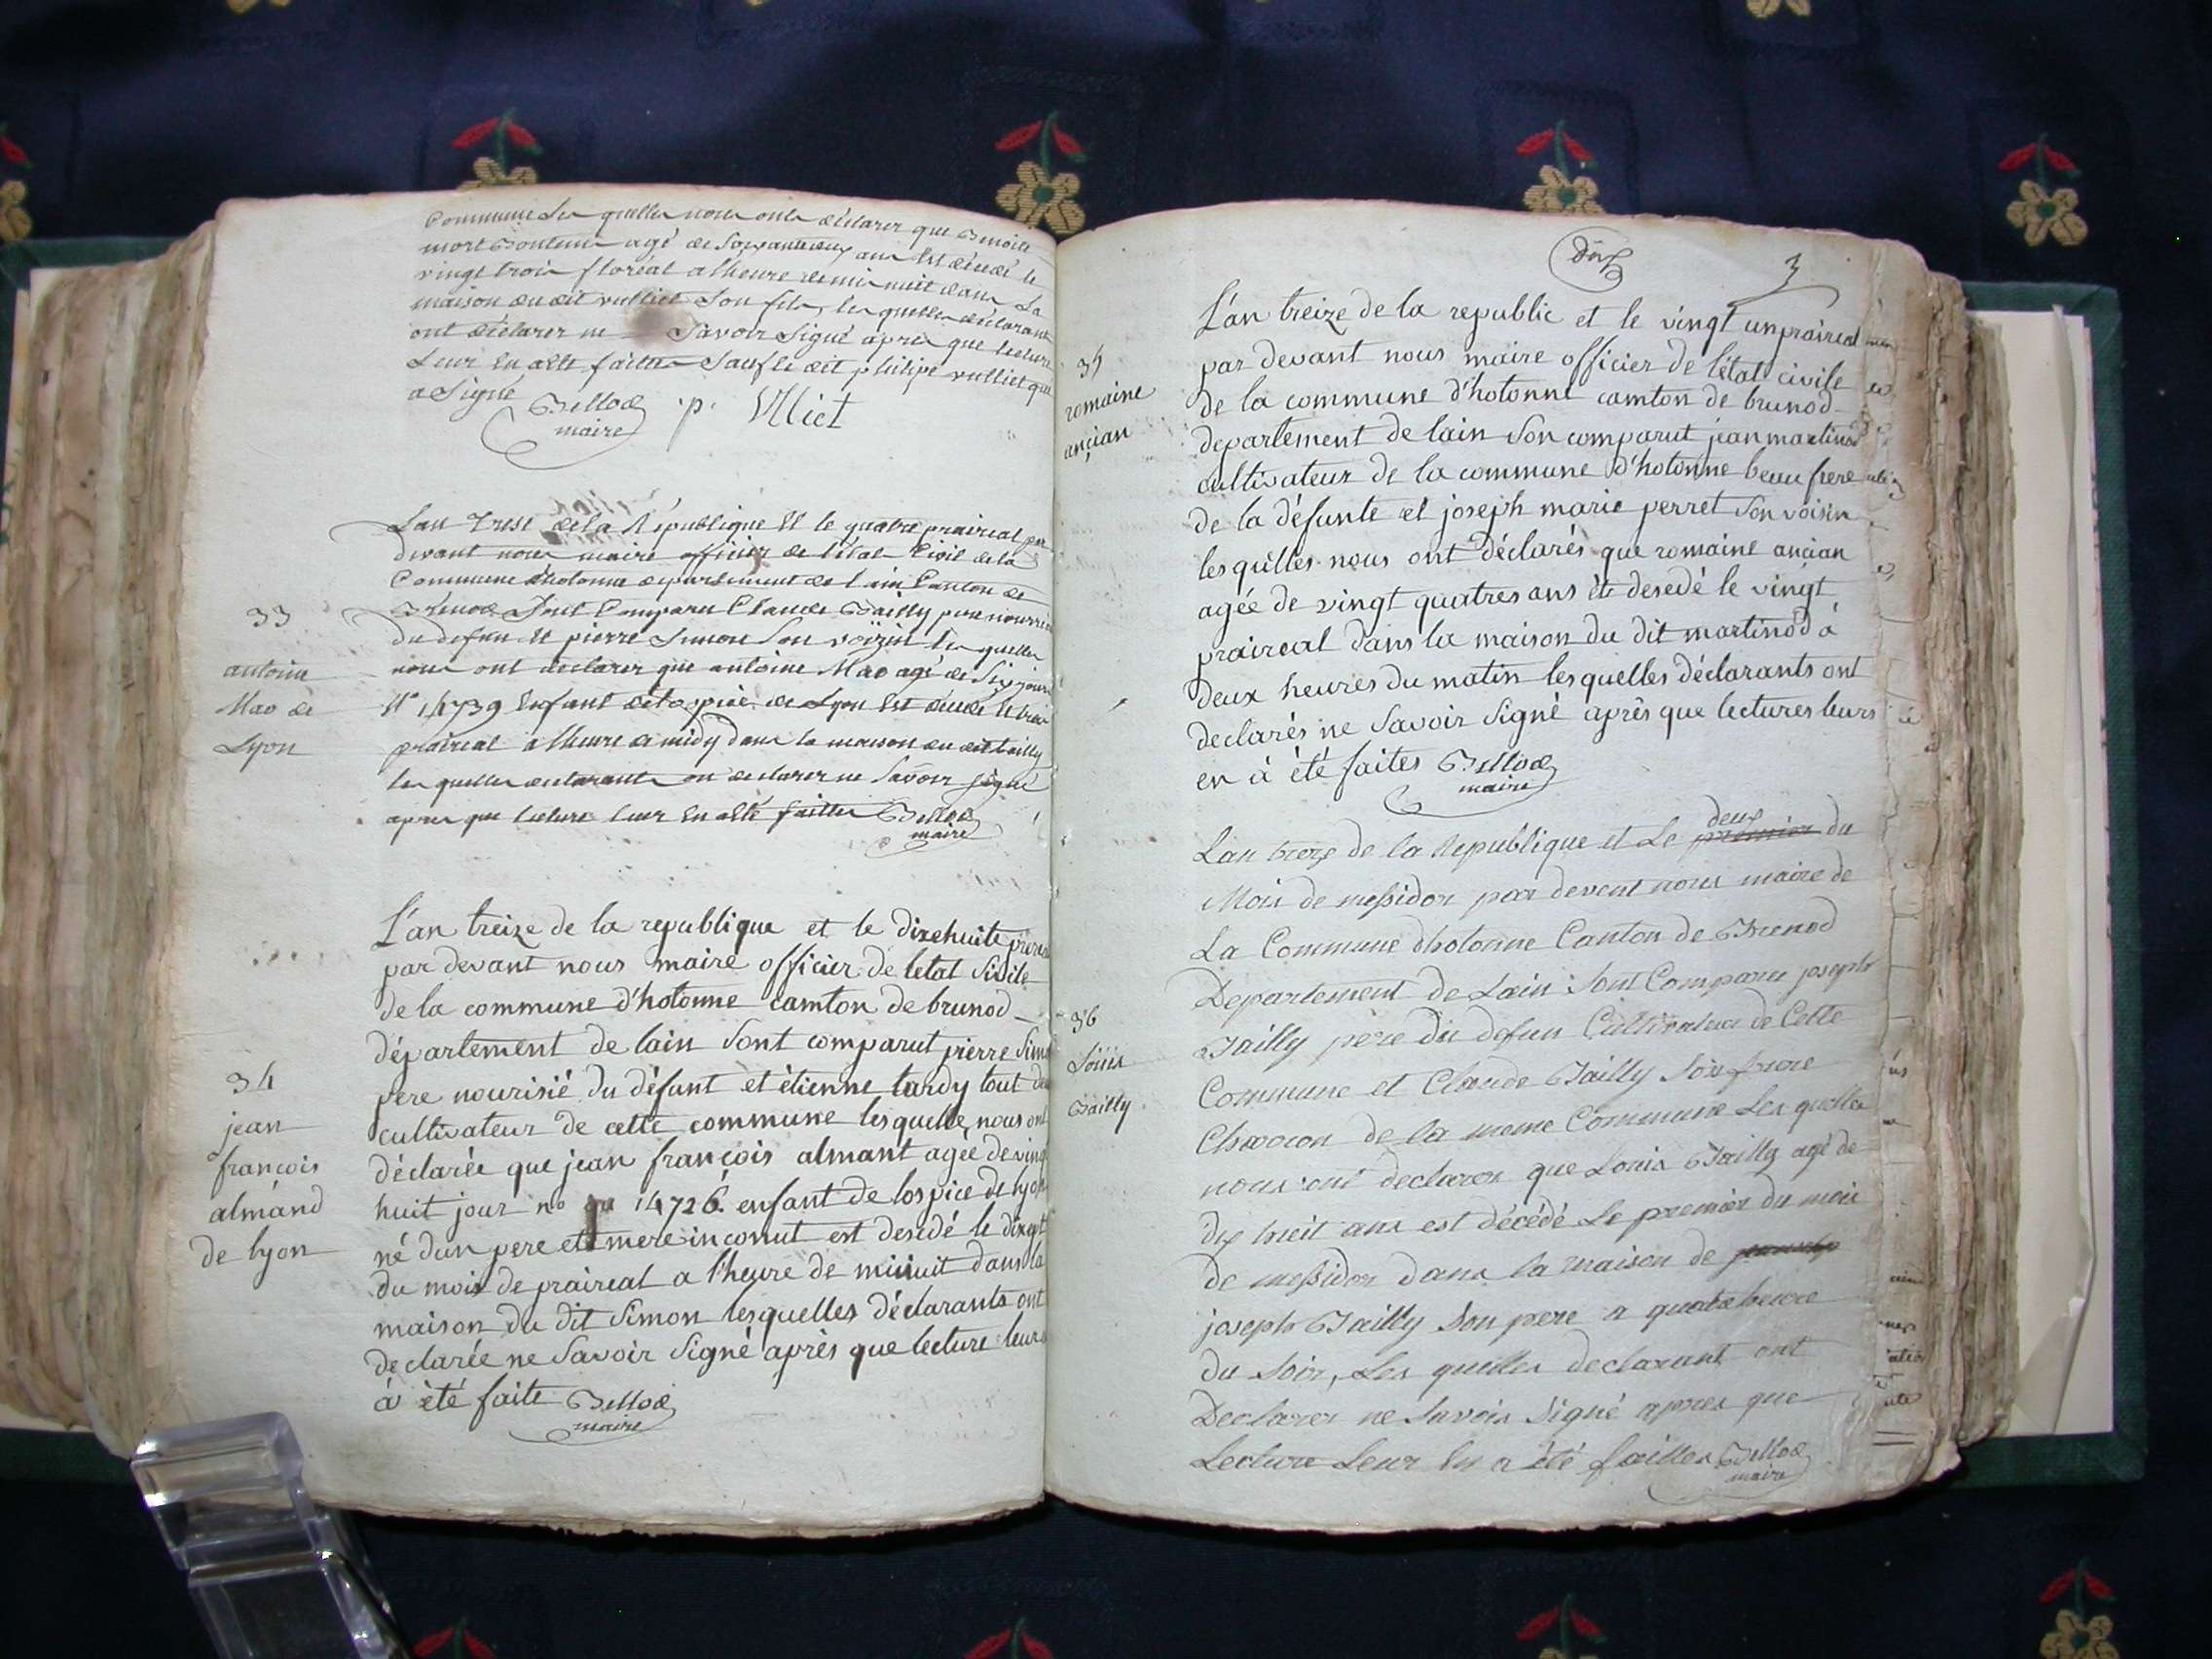 Commune Les quelles nous onts déclarer que Benoite
mort agé de Soixante deux ans Est décédé le
vingt trois floréal a lheure de mi nuit dans La
maison du dit vulliet Son fils, les quelles déclarant
ont déclarer ne Savoir Signé apres que lecture
Leur En a été faittes Sauf le dit philipe vulliet que
a Signé
Bellod
maire
p. Vlliet
33
antoine
Mao de
Lyon
Lan Trese de la République Et le quatre praireal par
devant nous maire officier de l'état Civil de la
Commune d'hotonne departement de l'ain Canton de
Brénod Sont Comparu Claude Bailly pere nourricie
du defun Et pierre Simon Son voizin les quelles
nous ont declarer que antoine Mao agé de Six jours
N° 14739 Enfant de l'ospice de Lyon Est décédé le trois
praireal a lheure de midy dans la maison du dit bailly
les quelles declarants on declarer ne Savoir Signé
apres que lecture leur En a Eté faittes Bellod
maire
34
jean
françois
almand
de lyon
L'an treize de la republique et le dixehuite praireal
par devant nous maire officier de letat Sivile
de la commune d'hotonne camton de brunod
département de lain Sont comparut pierre Simon
pere nourisié du défunt et étienne tardy tout deux
cultivateur de cette commune lesquelle nous ont
déclarée que jean françois almant agee de vingt
huit jour no 14726 enfant de lospice de lyon
né dun pere et mere inconut est desedé le dixsept
du mois de praireal a l'heure de minuit dans la
maison du dit Simon lesquelles déclarants ont
declarée ne Savoir Signé après que lecture leurs
à été faite Bellod
maire
3
35
romaine
ancian
L'an treize de la republic et le vingt un praireal
par devant nous maire officier de l'état civile
de la commune d'hotonne camton de brunod
departement de lain Son comparut jean martinod
cultivateur de la commune d'hotonne beau frere
de la défunte et joseph marie perret Son voisin
lesquelles nous ont déclarés que romaine ancian
agée de vingt quatres ans ét desedé le vingt
praireal dans la maison du dit martinod à
deux heures du matin lesquelles déclarants ont
declarés ne Savoir Signé après que lectures leurs
en à été faites Bellod
maire
36
Louis
Bailly
deux
Lan treize de la Republique et Le premier du
Mois de messidor par devent nous maire de
La Commune dhotonne Canton de Brenod
Departement de Lain Sont Comparu joseph
Bailly père du defun Cultivateur de Cette
Commune et Claude Bailly Son frere
Charron de la meme Commune Les quelles
nous ont declarer que Louis Bailly agé de
dix huit ans est décédé Le premier du mois
de messidor dans la maison de
joseph Bailly Son pere a quatre heure
du Soir, Les quelles declarant ont
Declarer ne Savoir Signé apres que
Lecture Leur En a été faittes Bellod
maire